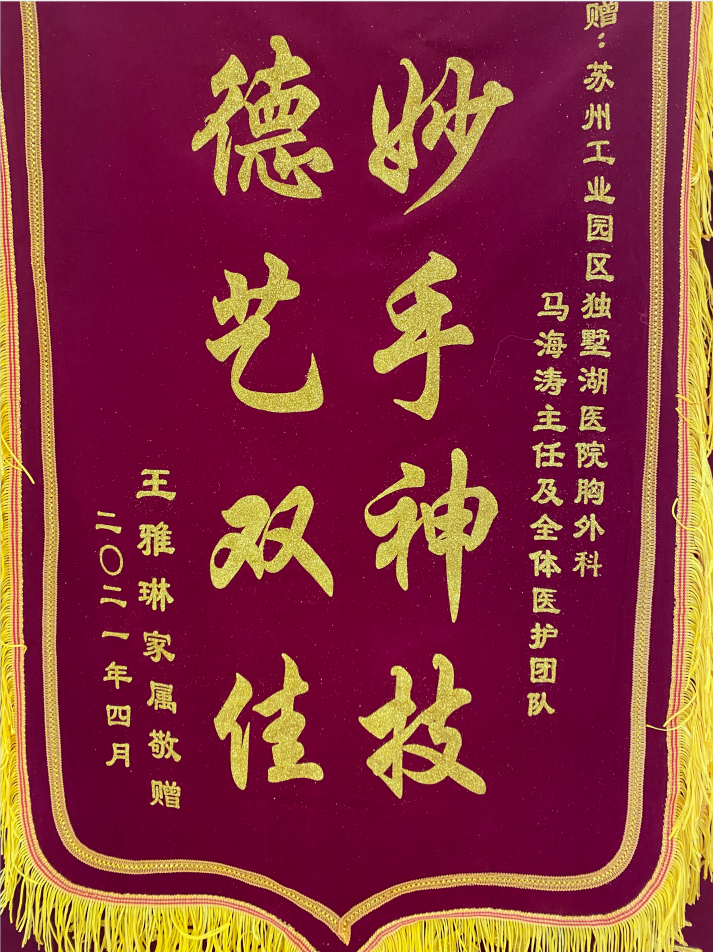 赠：苏州工业园区独墅湖医院胸外科
马海涛主任及全体医护团队
妙手神技
德艺双佳
王雅琳家属敬赠
二〇二一年四月